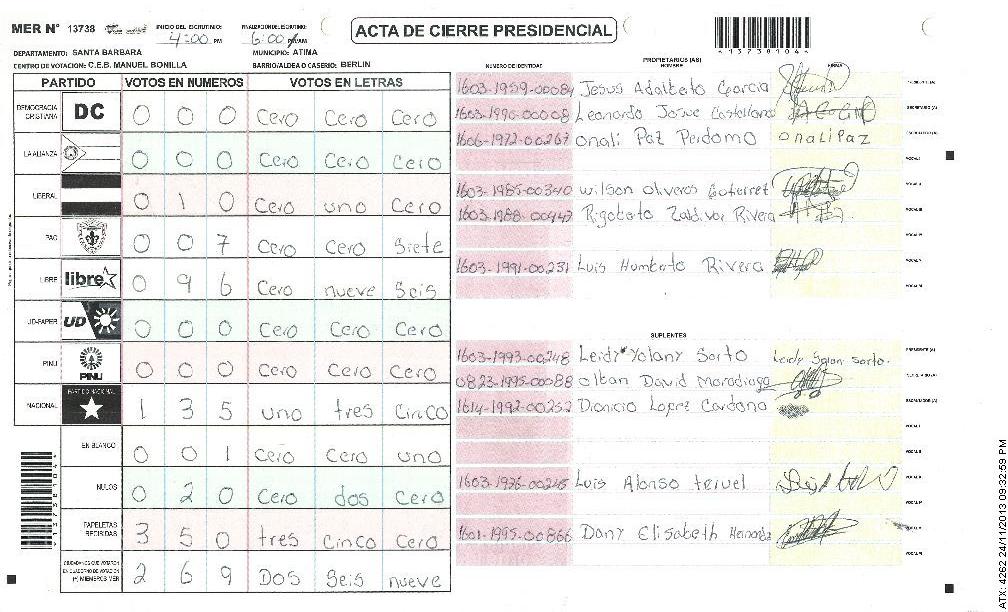 MER Nº 13738 INICIO DEL ESCRUTINIO: 4:00 PM FINALIZACION DEL ESCRUTINIO: 6:00 PM/AM
ACTA DE CIERRE PRESIDENCIAL
*13738104*
DEPARTAMENTO: SANTA BARBARA MUNICIPIO: ATIMA
CENTRO DE VOTACION: C.E.B. MANUEL BONILLA BARRIO/ALDEA O CASERIO: BERLIN
PARTIDO VOTOS EN NUMEROS VOTOS EN LETRAS
DEMOCRACIA CRISTIANA DC 0 0 0 Cero Cero Cero
LA ALIANZA 0 0 0 Cero Cero Cero
LIBERAL 0 1 0 Cero uno Cero
PAC 0 0 7 Cero Cero Siete
LIBRE libre 0 9 6 Cero nueve Seis
UD-FAPER UD 0 0 0 Cero Cero Cero
PINU PINU 0 0 0 Cero Cero Cero
NACIONAL PARTIDO NACIONAL 1 3 5 uno tres Cinco
EN BLANCO 0 0 1 Cero Cero uno
NULOS 0 2 0 Cero dos Cero
PAPELETAS RECIBIDAS 3 5 0 tres Cinco Cero
CIUDADANOS QUE VOTARON EN CUADERNO DE VOTACION (+) MIEMBROS MER 2 6 9 Dos Seis nueve
NUMERO DE IDENTIDAD PROPIETARIOS (AS) NOMBRE FIRMA
1603-1959-00084 Jesus Adalbeto Garcia PRESIDENTE (A)
1603-1990-00008 Leonardo Josue Castellano SECRETARIO (A)
1606-1972-00267 Onali Paz Perdomo onali Paz ESCRUTADOR (A)
VOCAL I
1603-1985-00340 Wilson Oliveros Gutierret VOCAL II
1603-1988-00447 Rigoberto Zaldivar Rivera VOCAL III
VOCAL IV
1603-1991-00231 Luis Humberto Rivera VOCAL V
VOCAL VI
SUPLENTES
1603-1993-00248 Leidy Yolany Sorto PRESIDENTE (A)
0823-1995-00088 olban David Moradiaga SECRETARIO (A)
1614-1992-00252 Dionicio Lopez Cardona ESCRUTADOR (A)
VOCAL I
VOCAL II
1603-1976-00245 Luis Alonso teruel VOCAL III
VOCAL IV
1601-1995-00866 Dany Elisabeth Hernandz VOCAL V
VOCAL VI
ATX: 4262 24/11/2013 09:32:59 PM